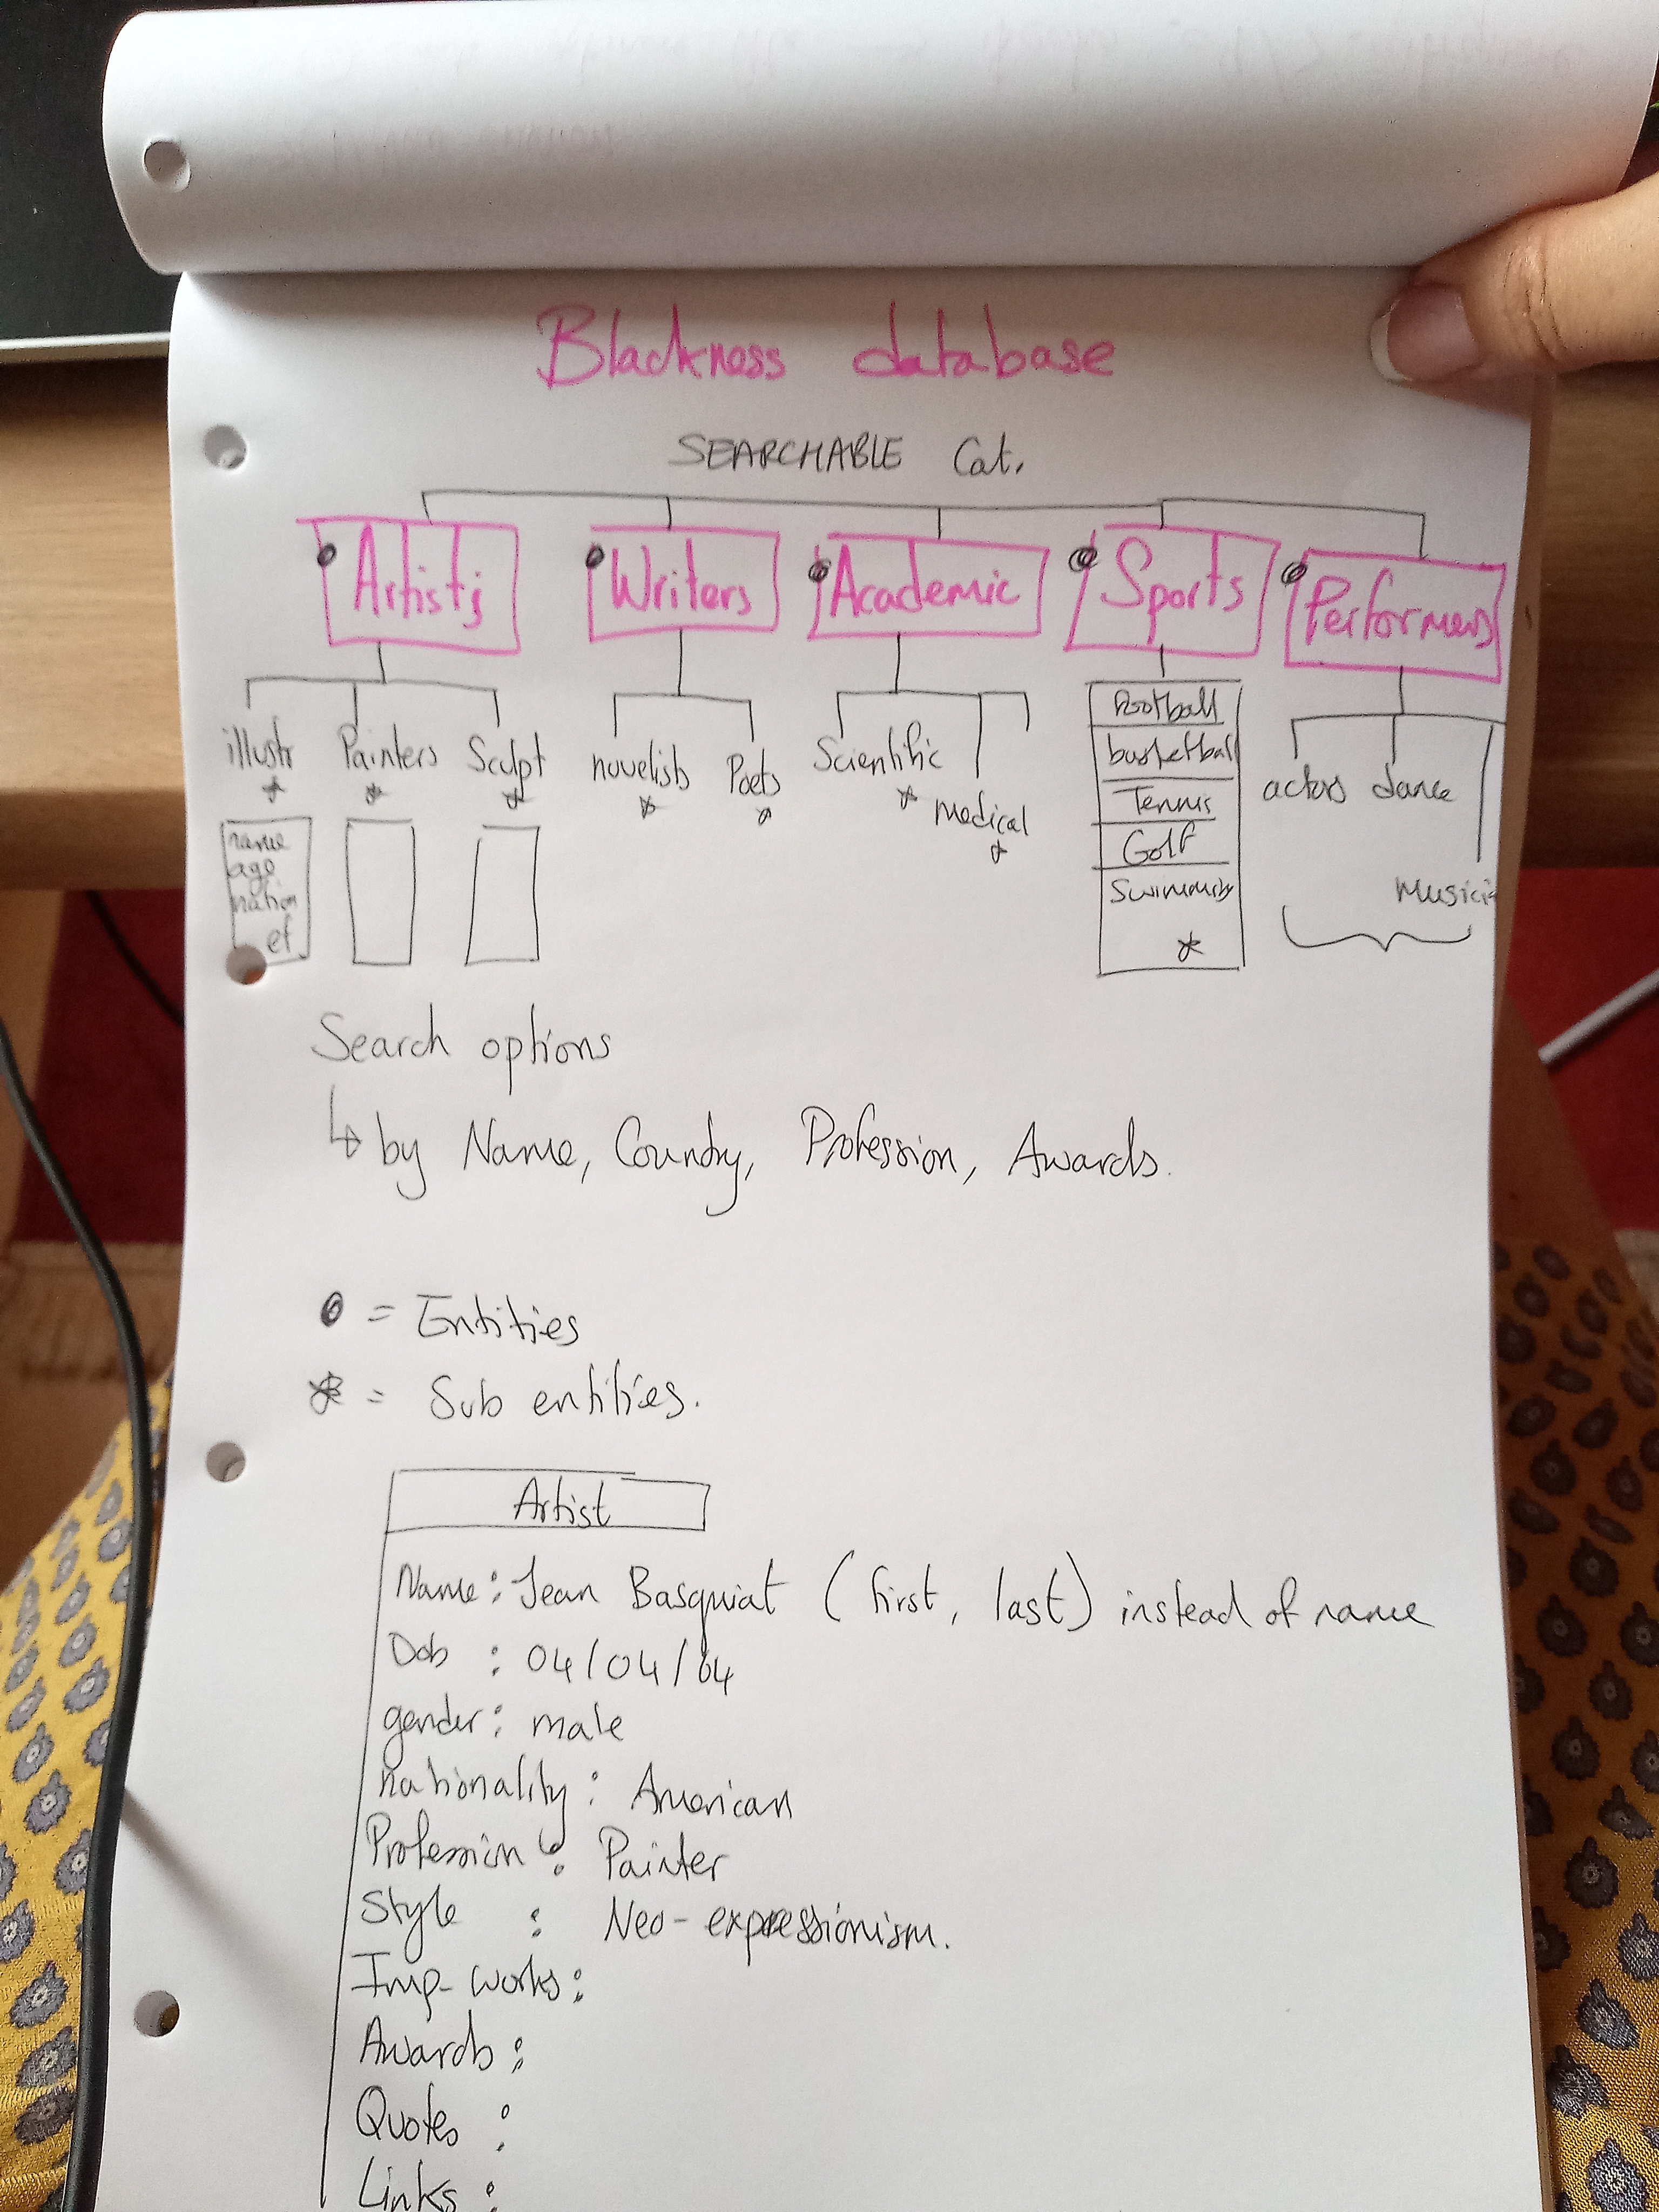 Blackness database
SEARCHABLE Cat.
Artists Writers Academic Sports Performers
illustr Painters Sculpt novelists Poets Scientific medical
Football
basketball
Tennis
Golf
Swimming
actors dance
Musici
name
age
nation
et
Search options
by Name, Country, Profession, Awards.
= Entities
* = Sub entities.
Artist
Name: Jean Basquiat (first, last) instead of name
Dob : 04/04/64
gender: male
nationality: American
Profession: Painter
Style : Neo-expressionism.
Imp-works:
Awards:
Quotes :
Links :